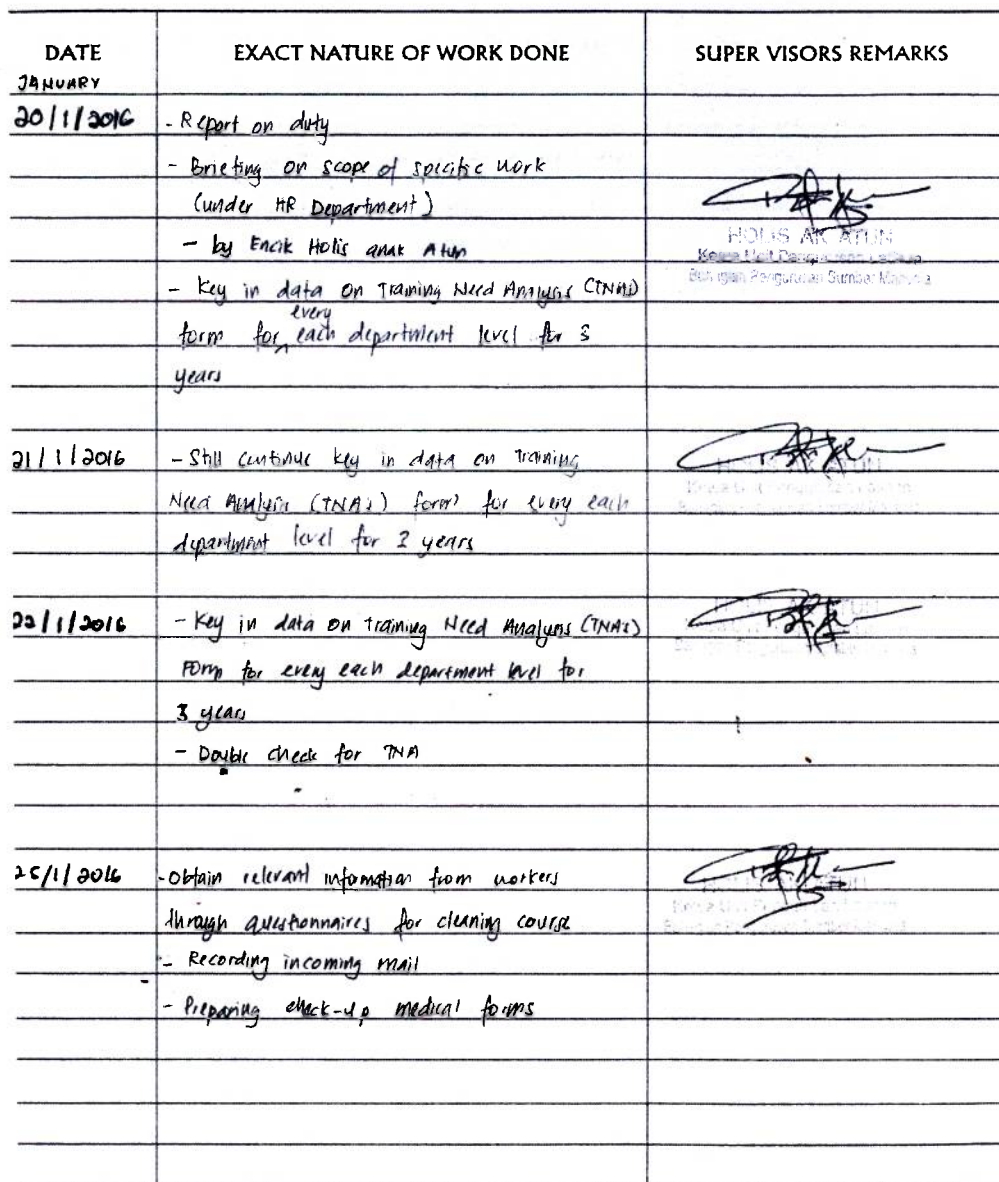 DATE EXACT NATURE OF WORK DONE SUPER VISORS REMARKS
JANUARY
20/1/2016 - Report on duty
- Briefing on scope of specific work
(under HR Department)
- by Encik Holis anak Atun
HOLIS AK ATUN
Ketua Unit
Bahagian Pengurusan Sumber Manusia
- Key in data on Training Need Analysis (TNAs)
every
form for ^ each department level for 3
years
21/1/2016 - Still continue key in data on Training
HOLIS AK ATUN
Need Analysis (TNA's) form for every each
department level for 3 years
22/1/2016 - Key in data on training Need Analysis (TNA's)
Form for every each department level for
3 years
- Double check for TNA
25/1/2016 - Obtain relevant information from workers
through questionnaires for cleaning course
- Recording incoming mail
- Preparing check-up medical forms